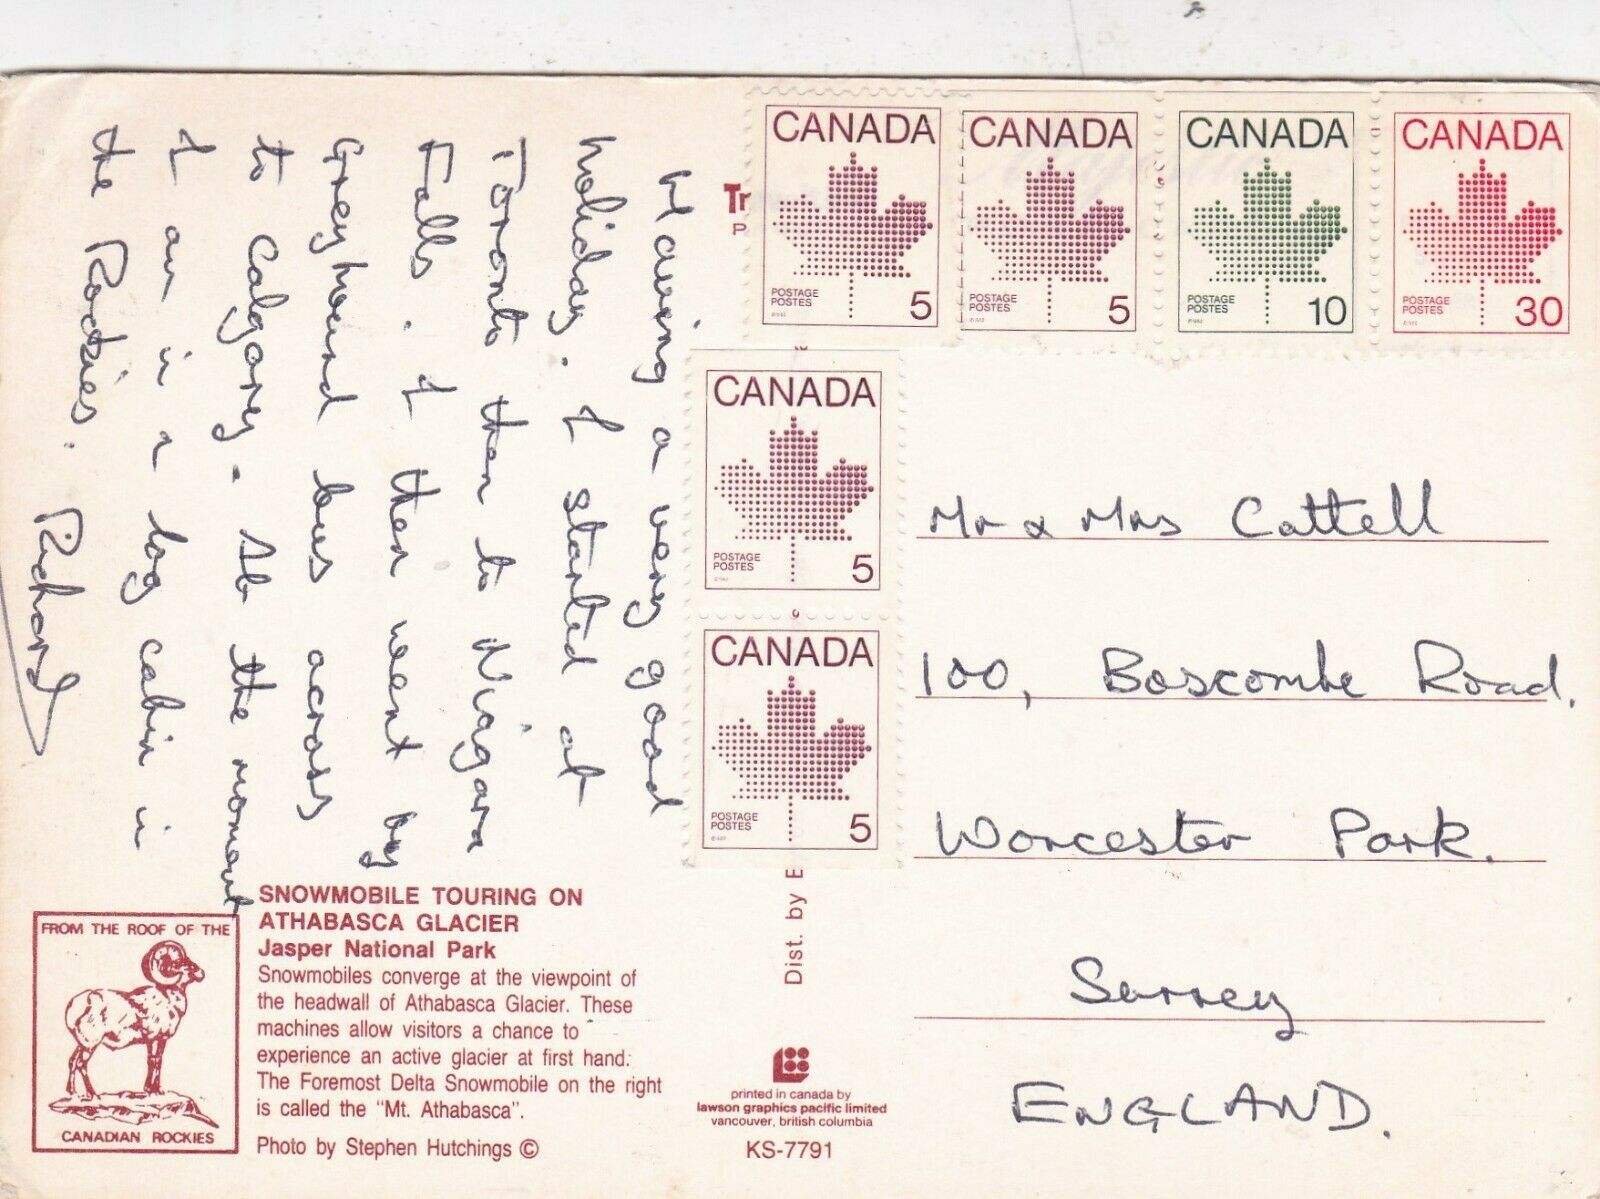 Having a very good
holiday. I started at
Toronto then to Niagara
Falls. I then went by
Greyhound bus across
to Calgary. At the moment
I am in a log cabin in
the Rockies.
Richard
Tr
P
CANADA
POSTAGE
POSTES
5
CANADA
POSTAGE
POSTES
5
CANADA
POSTAGE
POSTES
10
CANADA
POSTAGE
POSTES
30
CANADA
POSTAGE
POSTES
5
CANADA
POSTAGE
POSTES
5
Mr & Mrs Cattell
100, Boscombe Road.
Worcester Park.
Surrey
ENGLAND.
Dist. by E
FROM THE ROOF OF THE
CANADIAN ROCKIES
SNOWMOBILE TOURING ON
ATHABASCA GLACIER
Jasper National Park
Snowmobiles converge at the viewpoint of
the headwall of Athabasca Glacier. These
machines allow visitors a chance to
experience an active glacier at first hand.
The Foremost Delta Snowmobile on the right
is called the "Mt. Athabasca".
Photo by Stephen Hutchings ©
printed in canada by
lawson graphics pacific limited
vancouver, british columbia
KS-7791